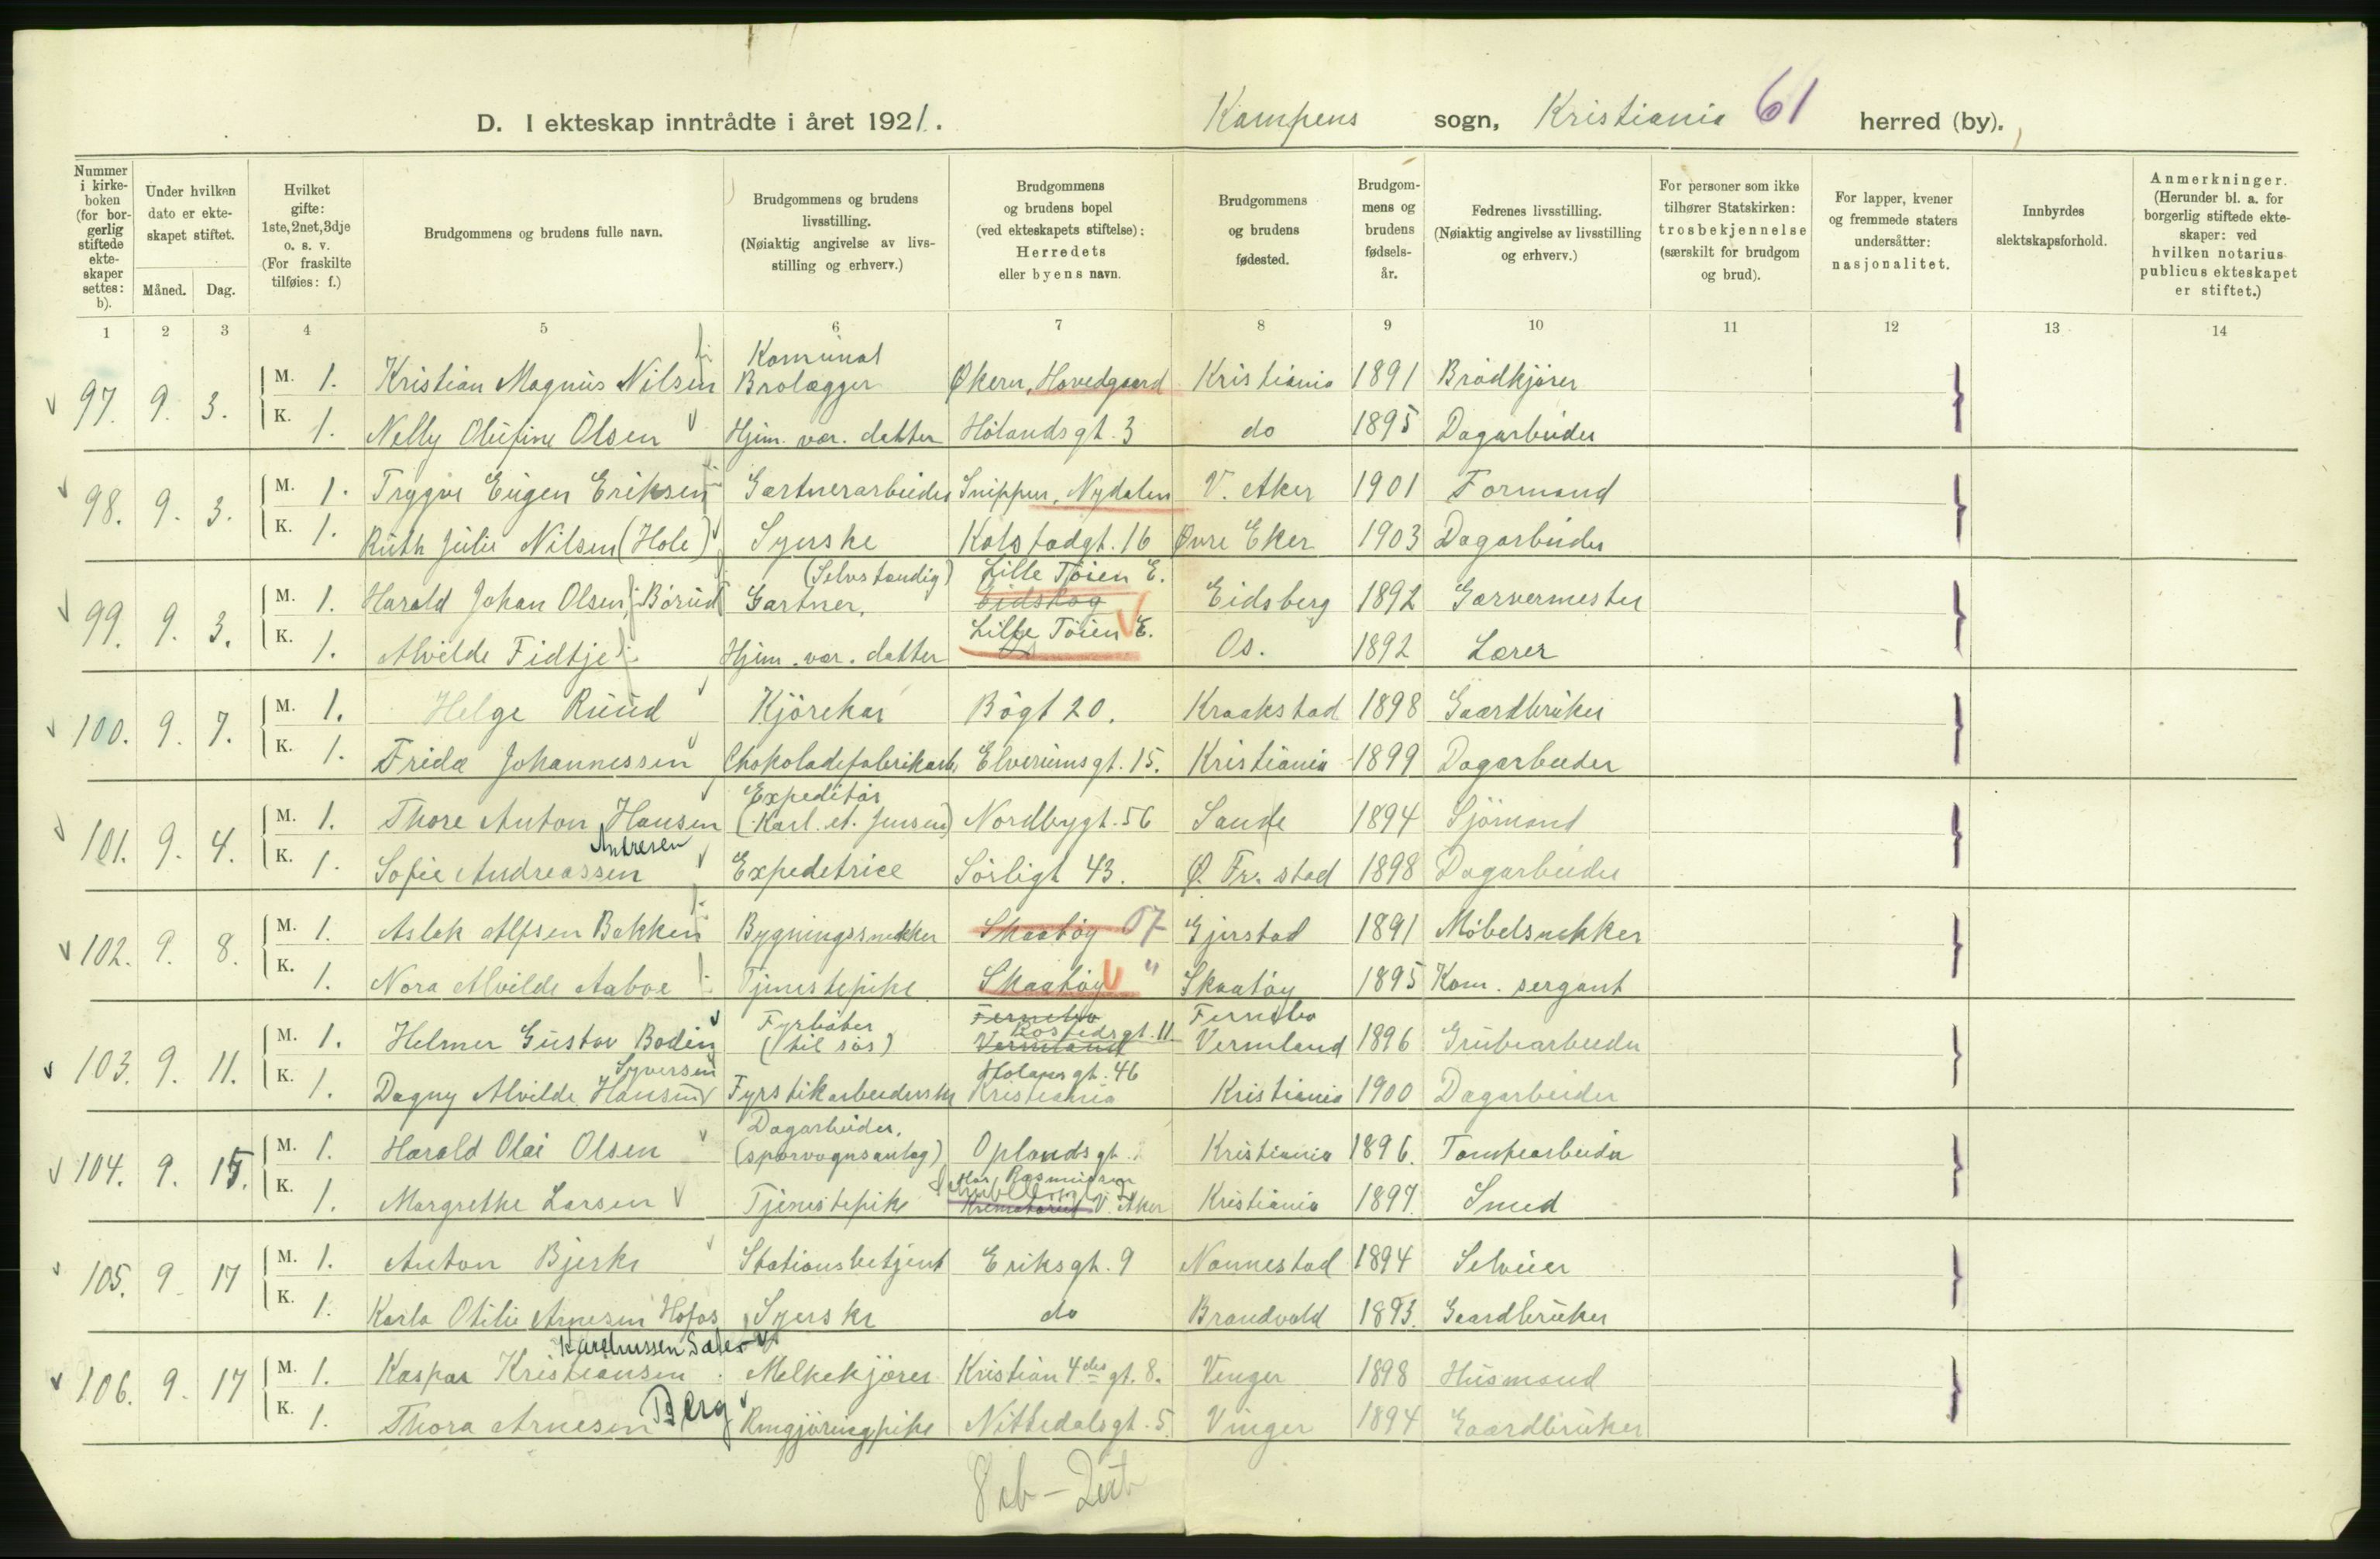 D. I ekteskap inntrådte i året 1921. Kampens sogn, Kristiania 61 herred (by).
Nummer i kirkeboken (for borgerlig stiftede ekteskaper settes: b).
Under hvilken dato er ekteskapet stiftet.
Måned. Dag.
Hvilket gifte: 1ste, 2net, 3dje o. s. v. (For fraskilte tilføies: f.)
Brudgommens og brudens fulle navn.
Brudgommens og brudens livsstilling. (Nøiaktig angivelse av livsstilling og erhverv.)
Brudgommens og brudens bopel (ved ekteskapets stiftelse): Herredets eller byens navn.
Brudgommens og brudens fødested.
Brudgommens og brudens fødselsår.
Fedrenes livsstilling. (Nøiaktig angivelse av livsstilling og erhverv.)
For personer som ikke tilhører Statskirken: trosbekjennelse (særskilt for brudgom og brud).
For lapper, kvener og fremmede staters undersåtter: nasjonalitet.
Innbyrdes slektskapsforhold.
Anmerkninger. (Herunder bl. a. for borgerlig stiftede ekteskaper: ved hvilken notarius publicus ekteskapet er stiftet.)
1 2 3 4 5 6 7 8 9 10 11 12 13 14
Komunal
97. 9. 3. M. 1. Kristian Magnus Nilsen Brolægger Økern, Hovedgaard Kristiania 1891 Brödkjörer
K. 1. Nelly Olufine Olsen Hjem. vær. datter Hölandsgt. 3 do 1895 Dagarbeider
98. 9. 3. M. 1. Trygve Eugen Eriksen Gartnerarbeider Snippen, Nydalen V. Aker 1901 Formand
K. 1. Ruth Julie Nilsen (Hole) Syerske Kolstadgt. 16 Øvre Eker 1903 Dagarbeider
(Selvstændig) Lille Töien E.
99. 9. 3. M. 1. Harald Johan Olsen Börud Gartner, Eidskog Eidsberg 1892 Garvermester
Lille Töien E.
K. 1. Alvilde Fidtje Hjem. vær. datter Os Os. 1892 Lærer
100. 9. 7. M. 1. Helge Ruud Kjörekar Bögt 20. Kraakstad 1898 Gaardbruker
K. 1. Frida Johannessen Chokoladefabrikarb. Elverumsgt. 15. Kristiania 1899 Dagarbeider
Expeditör
101. 9. 4. M. 1. Thore Anton Hansen (Karl. A. Jensen) Nordbygt. 56 Sande 1894 Sjömand
Andresen
K. 1. Sofie Andreassen Expeditrice Sörligt 43. Ø. Fr. stad 1898 Dagarbeider
102. 9. 8. M. 1. Aslak Alfsen Bakken Bygningssnekker Skaatöy 07 Gjerstad 1891 Möbelsnekker
K. 1. Nora Alvilde Aaboe Tjenestepike Skaatöy " Skaatöy 1895 Kom. sergant
Fyrböter Fernebo Fernebo
Rostedsgt. 11
103. 9. 11. M. 1. Helmer Gustav Bodin (til sös) Vermland Vermland 1896 Grubearbeider
Syversen Holapsgt. 46
K. 1. Dagny Alvilde Hansen Fyrstikarbeiderske Kristiania Kristiania 1900 Dagarbeider
Dagarbeider.
104. 9. 15. M. 1. Harald Olai Olsen (sporvognsanlæg) Oplandsgt. Kristiania 1896. Tomtearbeider
K. 1. Margrethe Larsen Tjenestepike V. Aker Kristiania 1897. Smed
105. 9. 17 M. 1. Anton Bjerke Stationsbetjent Eriksgt. 9 Nannestad 1894 Selveier
K. 1. Karla Otilie Arnesen Hofos Syerske do Brandvold 1893. Gaardbruker
106. 9. 17 M. 1. Kaspar Kristiansen Melkekjörer Kristian 4des gt. 8. Vinger 1898 Husmand
K. 1. Thora Arnesen Berg Rengjöringspike Nittedalsgt. 5. Vinger 1894 Gaardbruker